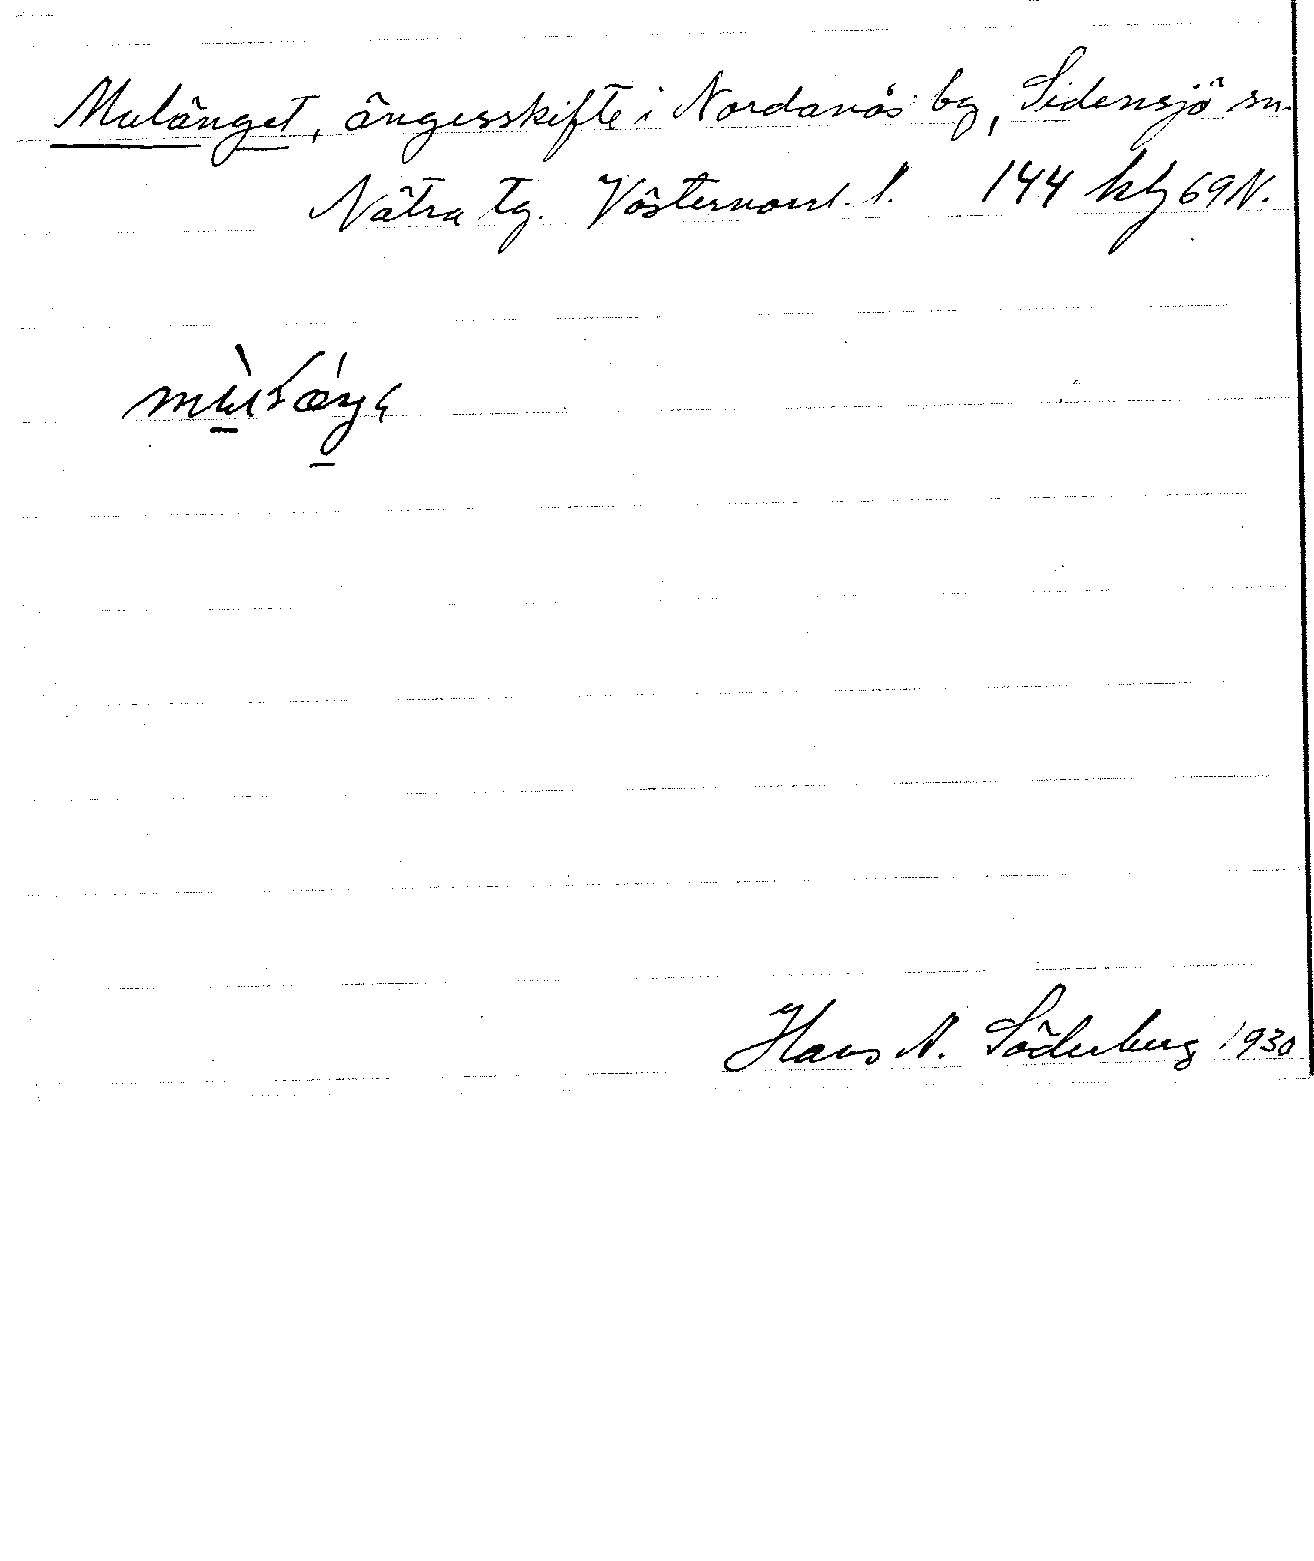 Mulänget, ängesskifte i Nordanås by, Sidensjö sn.
Nätra tg. Västernorrl. l. 144 kbg 69 N.
Hans N. Söderberg 1930